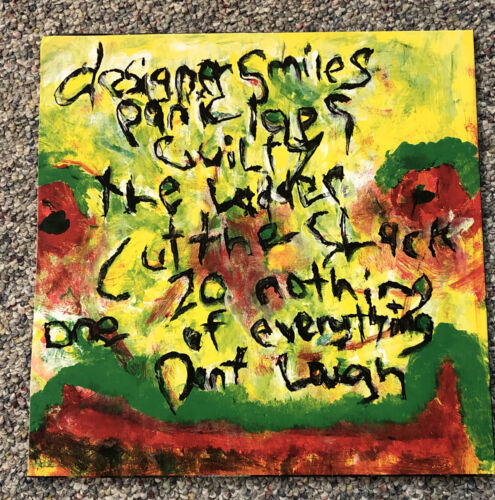 designer Smiles
panic
Guilty
the Ladder
Cut the Slack
20 nothing
one of everything
Dont Laugh